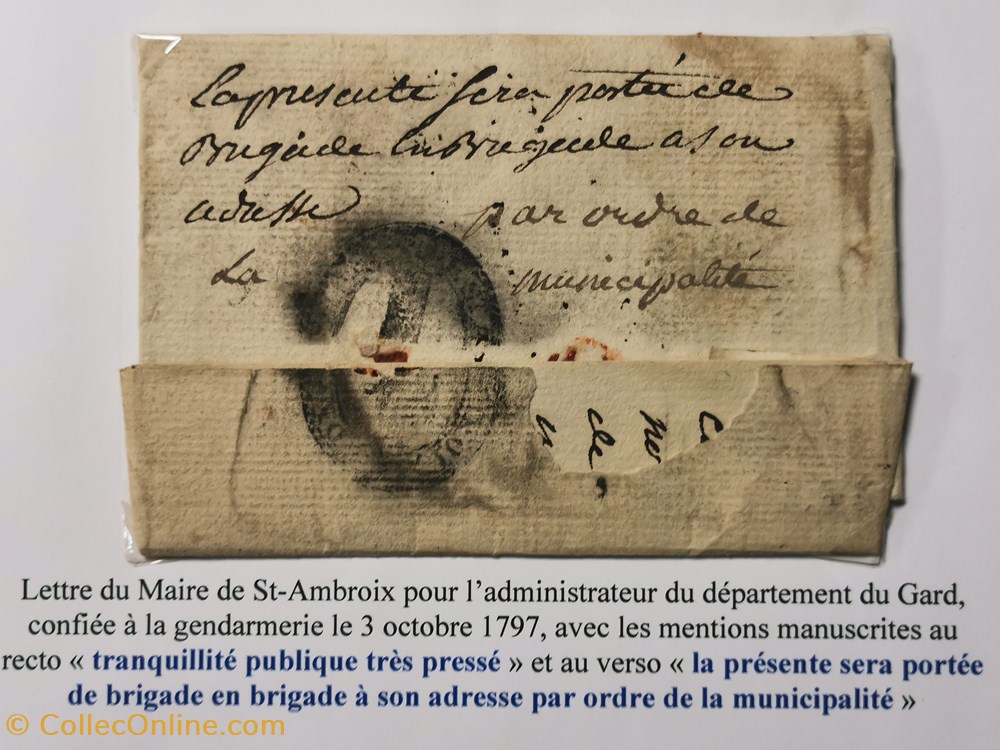 La presente sera portée de
Brigade en Brigade a son
adresse par ordre de
La municipalité
de
Lettre du Maire de St-Ambroix pour l’administrateur du département du Gard,
confiée à la gendarmerie le 3 octobre 1797, avec les mentions manuscrites au
recto « tranquillité publique très pressé » et au verso « la présente sera portée
de brigade en brigade à son adresse par ordre de la municipalité »
© CollecOnline.com